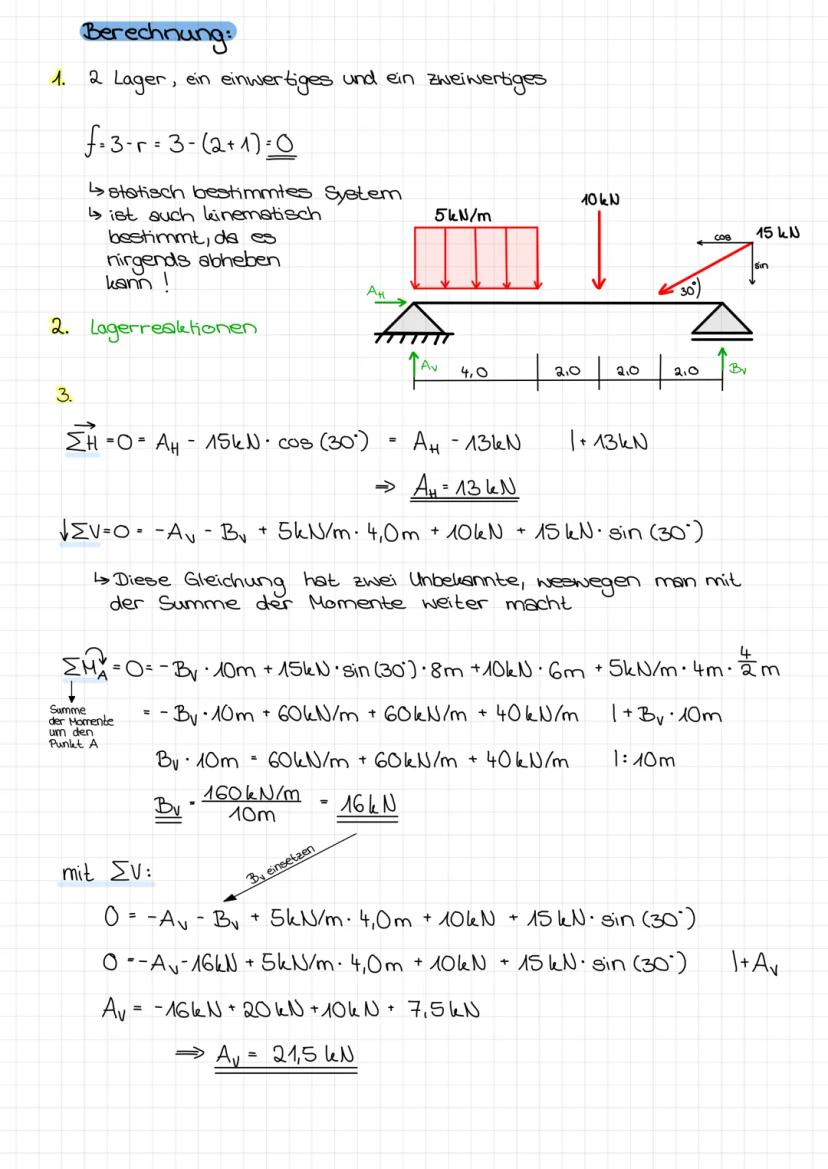 Berechnung:
1. 2 Lager, ein einwertiges und ein zweiwertiges
f = 3 - r = 3 - (2+1) = 0
↳ statisch bestimmtes System
↳ ist auch kinematisch
bestimmt, da es
nirgends abheben
kann !
5kN/m
10kN
cos
15 kN
sin
30°
A_H
2. Lagerreaktionen
A_V
4,0
2,0
2,0
2,0
B_V
3.
ΣH = 0 = A_H - 15kN · cos (30°) = A_H - 13kN |+ 13kN
⇒ A_H = 13 kN
↓ΣV=0 = -A_V - B_V + 5kN/m · 4,0m + 10kN + 15kN · sin (30°)
↳ Diese Gleichung hat zwei Unbekannte, weswegen man mit
der Summe der Momente weiter macht
ΣM_A = 0 = - B_V · 10m + 15kN · sin (30°) · 8m + 10kN · 6m + 5kN/m · 4m · 4/2 m
Summe
der Momente
um den
Punkt A
= - B_V · 10m + 60kN/m + 60kN/m + 40kN/m |+ B_V · 10m
B_V · 10m = 60kN/m + 60kN/m + 40kN/m |: 10m
B_V = 160kN/m / 10m = 16kN
B_V einsetzen
mit ΣV:
0 = -A_V - B_V + 5kN/m · 4,0m + 10kN + 15kN · sin (30°)
0 = -A_V - 16kN + 5kN/m · 4,0m + 10kN + 15kN · sin (30°) |+A_V
A_V = -16kN + 20kN + 10kN + 7,5kN
⇒ A_V = 21,5 kN